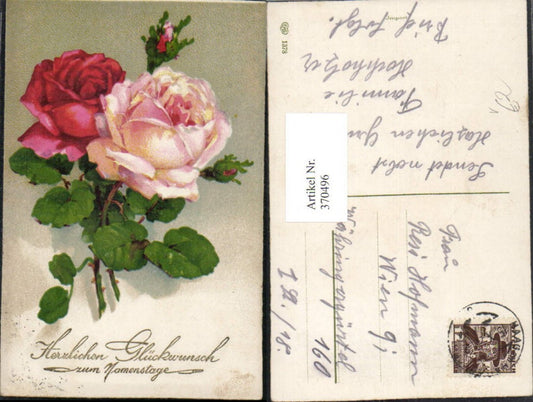 Herzlichen Glückwunsch
zum Namenstage
1378
Sendet nebst
Herzlichen
Familie
Hochholzer
Brief folgt.
Artikel Nr.
370496
Frau
Resi Hofmann
Wien 9/
Währingergürtel
160
18./18.